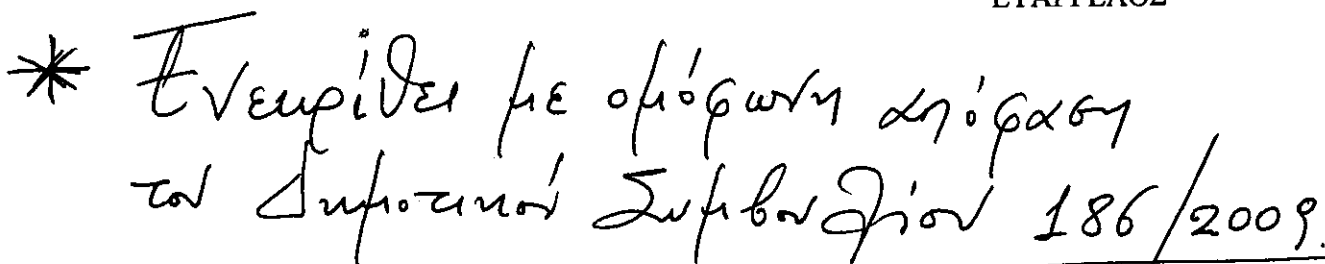 ΕΥΑΓΓΕΛΟΣ
* Ενεκρίθει με ομόφωνη απόφαση
του Δημοτικού Συμβουλίου 186/2009.